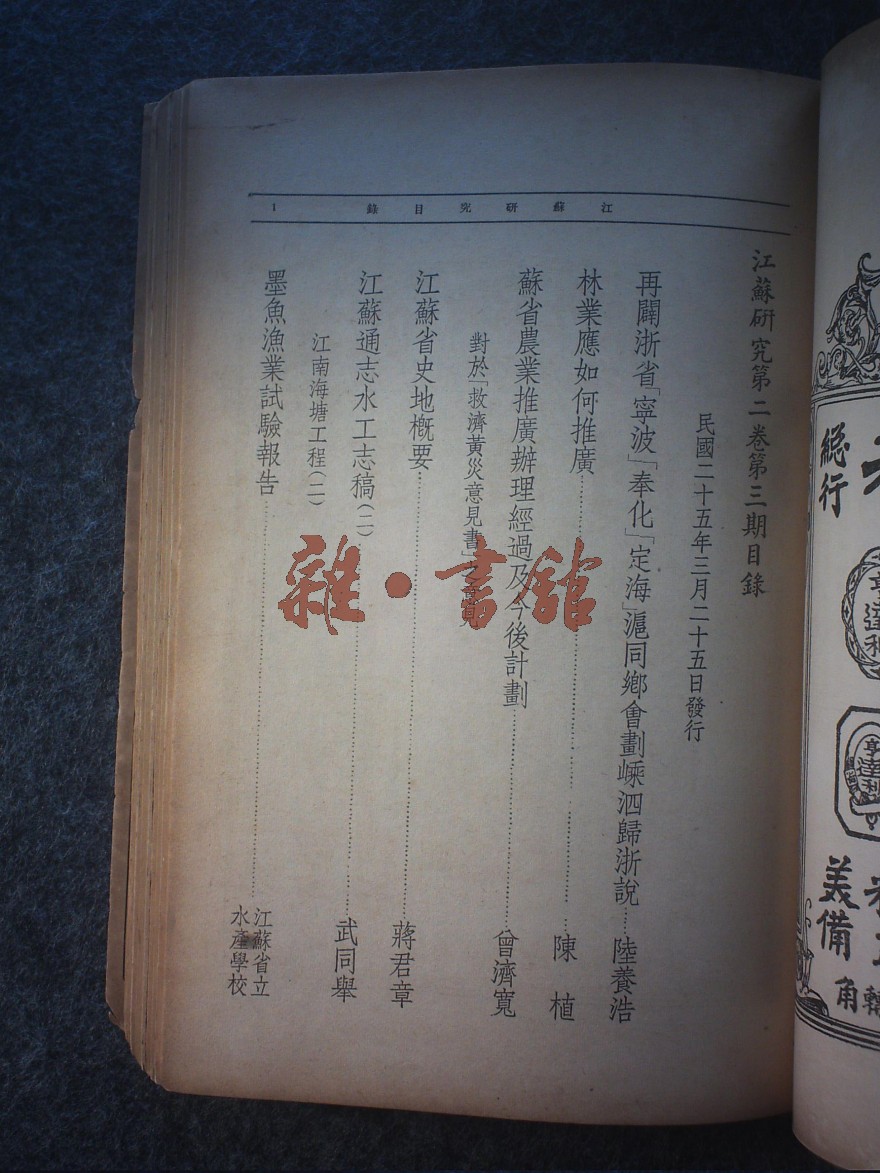 江蘇研究目錄 1
江蘇研究第二卷第三期目錄
民國二十五年三月二十五日發行
再闢浙省「寧波」「奉化」「定海」滬同鄉會劃嵊泗歸浙說……陸養浩
林業應如何推廣……陳植
蘇省農業推廣辦理經過及今後計劃……曾濟寬
對於「救濟黃災意見書」
江蘇省史地概要……蔣君章
江蘇通志水工志稿(二)……武同舉
江南海塘工程(二)
墨魚漁業試驗報告……江蘇省立水產學校
雜·書館
總行
亨達利
亨達利
美備
角